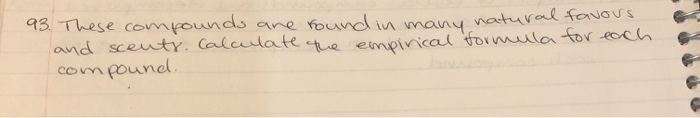 93. These compounds are found in many natural favors
and scents. Calculate the empirical formula for each
compound.